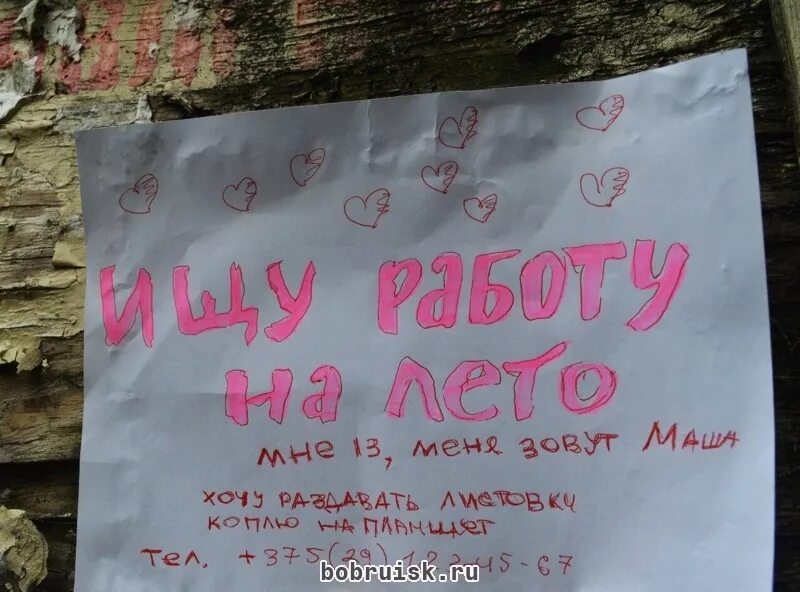 Ищу работу
на лето
мне 13, меня зовут Маша
хочу раздавать листовки
коплю на планшет
тел. +375(29)
bobruisk.ru